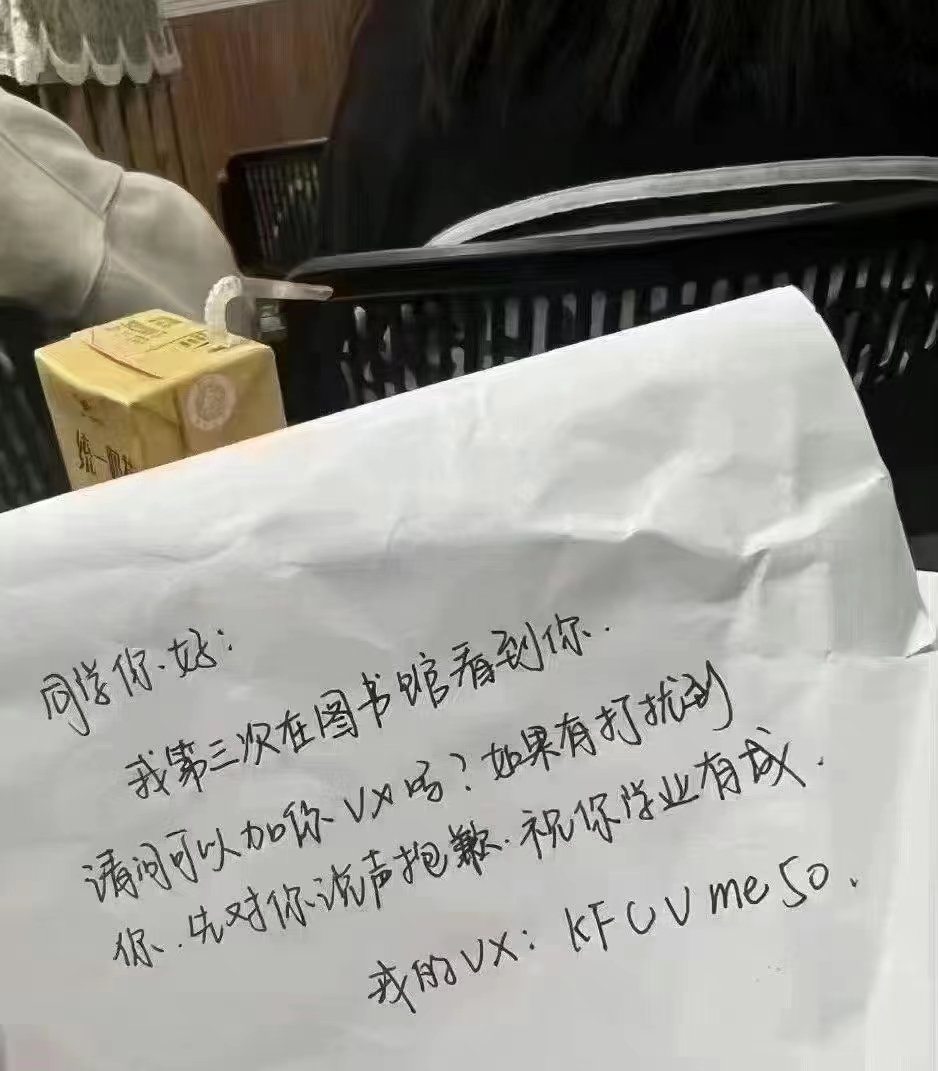 统一奶茶
同学你好：
我第三次在图书馆看到你.
请问可以加你VX吗？如果有打扰到
你.先对你说声抱歉.祝你学业有成.
我的VX：KFCVme50.